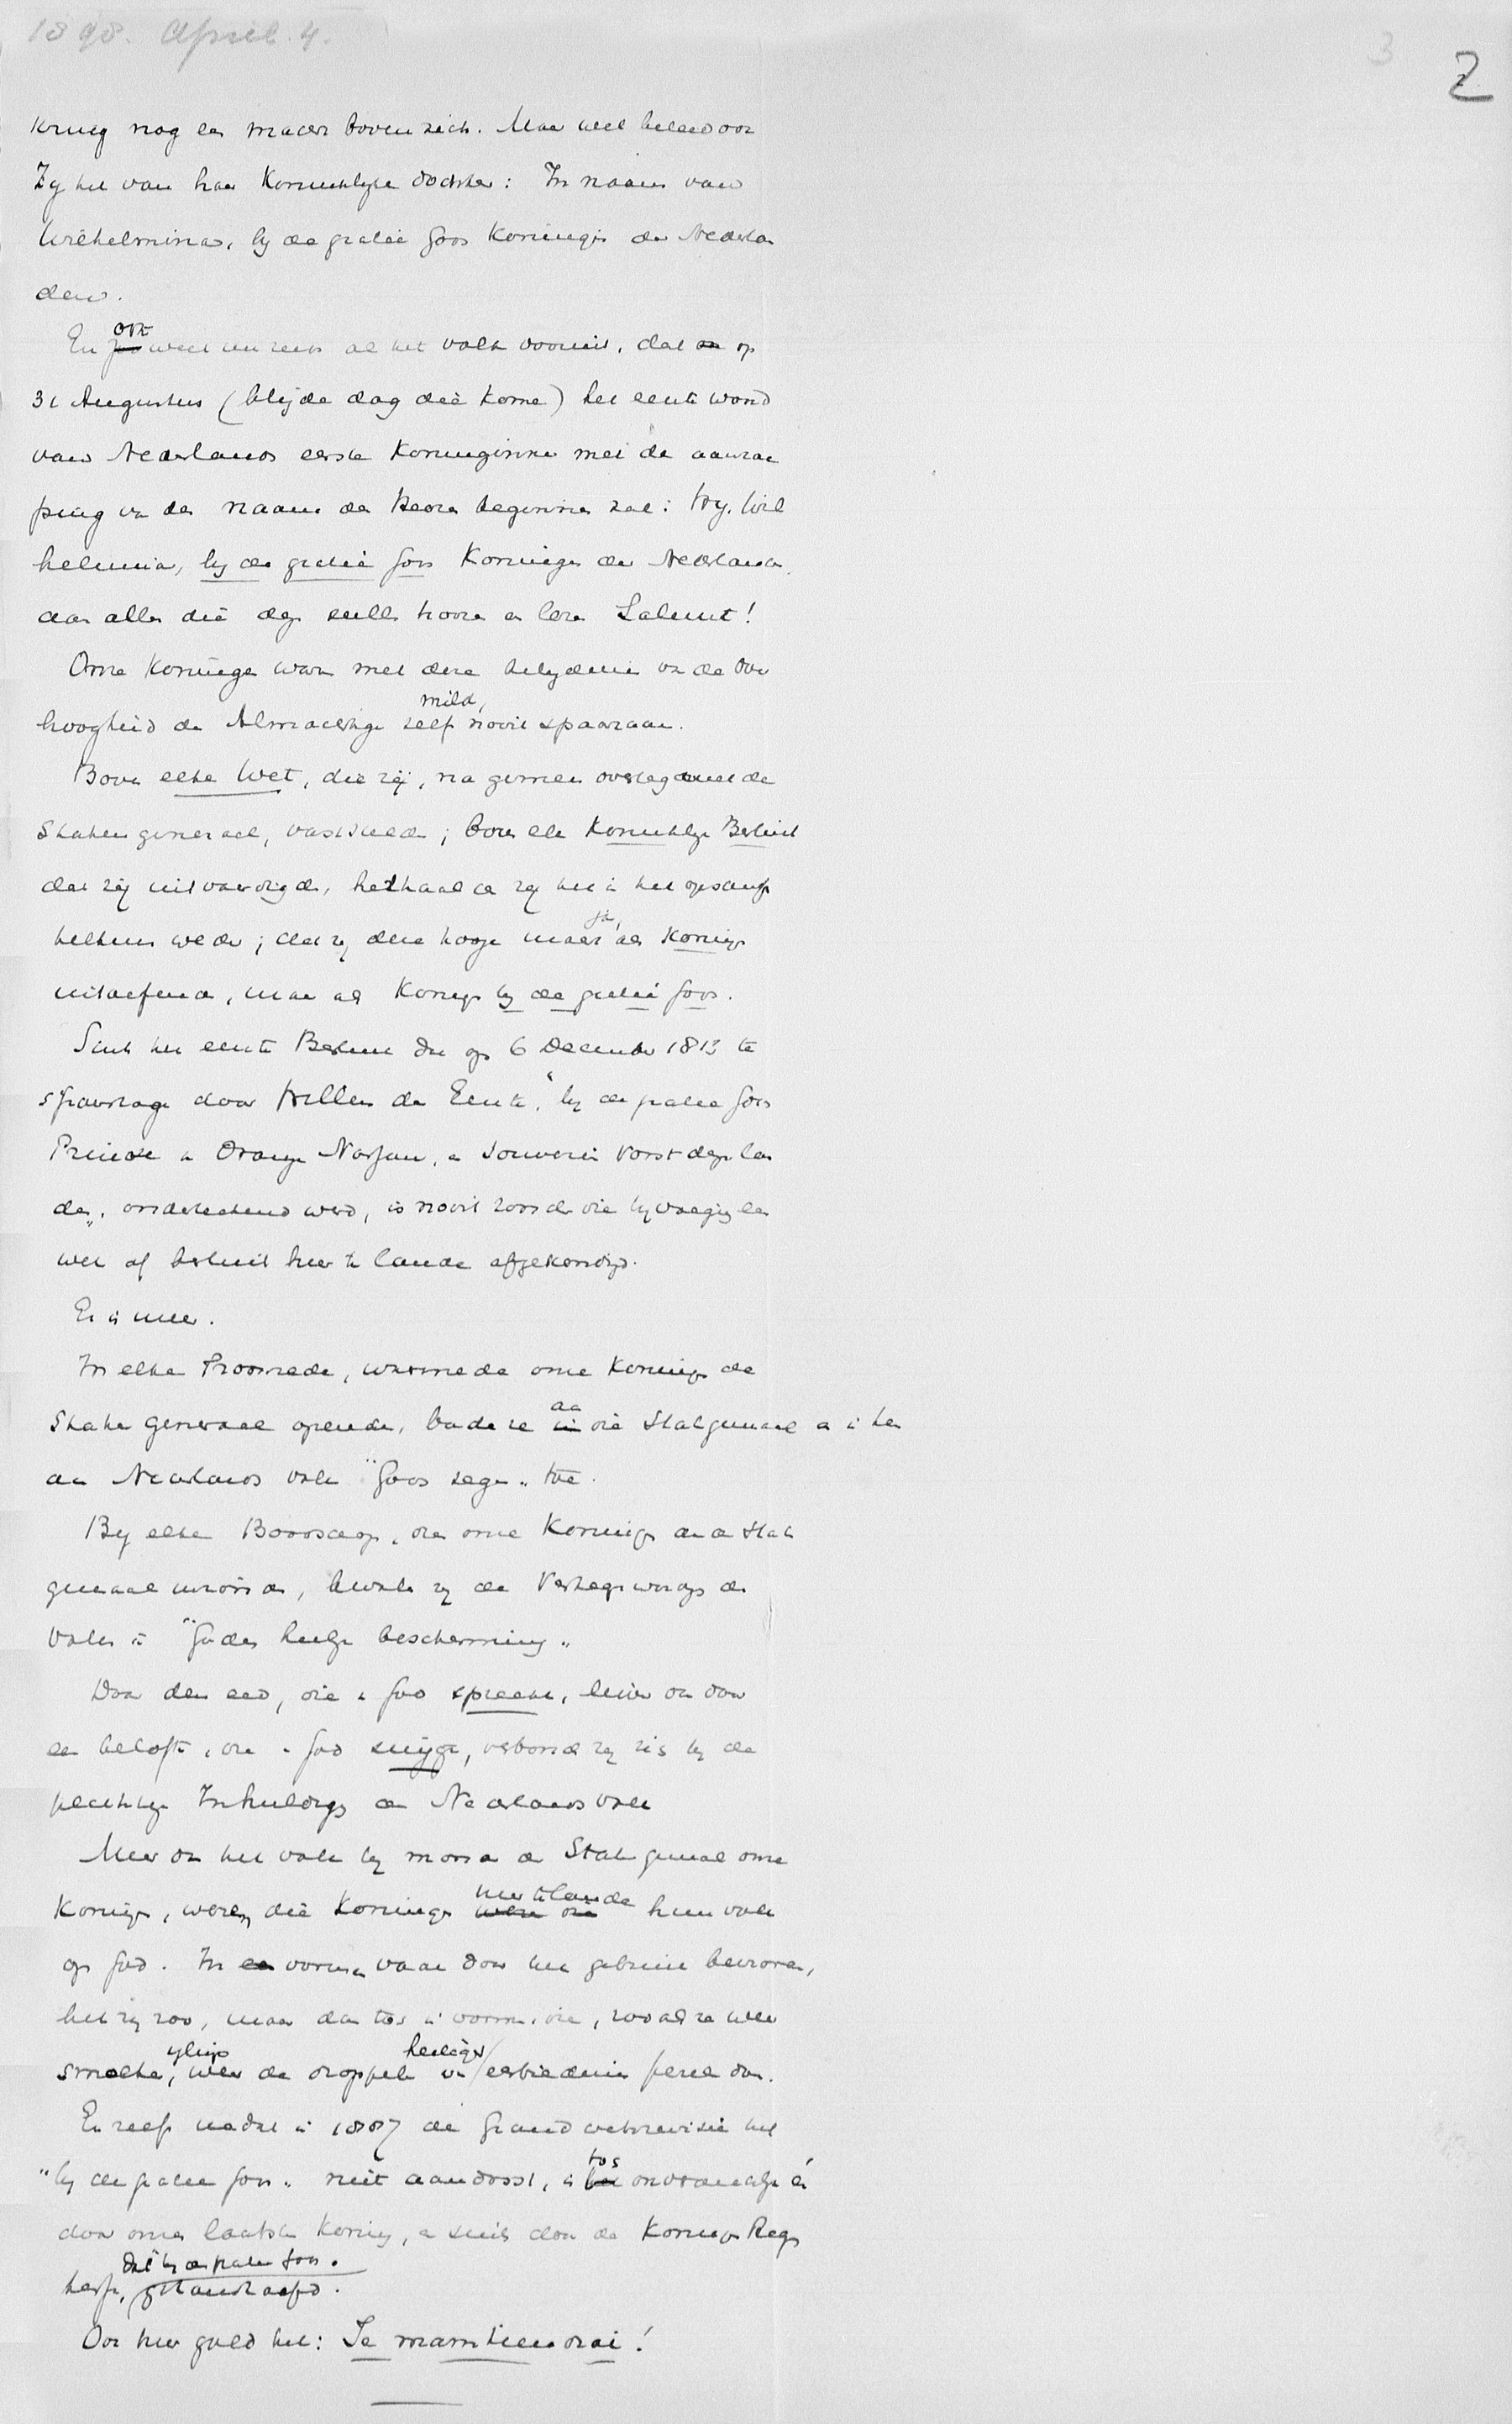 1898. April. 4.
3
2
kring nog een macht boven zich. Maar wel beleed ook
Zij het van haar Koninklijke dochter: In naam van
Wilhelmina, bij de gratie Gods Koningin der Nederlan
den.
En ook weet nu reeds al het volk vooruit, dat op
31 Augustus (blijde dag die kome) het eerste woord
van Nederlands eerste Koninginne met de aanroe
ping van den naam des Heeren beginnen zal: Wij, Wil
helmina, bij de gratie Gods Koningin der Nederlanden
aan allen die deze zullen hooren en lezen Saluut!
Onze Koningen waren met deze belijdenis van de Op
hoogheid des Almachtige zelf mild, nooit spaarzaam.
Boven elke Wet, die zij, na gemeen overleg met de
Staten generaal, vaststelden; boven elk Koninklijk Besluit
dat zij uitvaardigden, herhaalden zij het in het opschrift
telkens weder; dat zij deze hooge macht ja, als Koning
uitoefenden, maar als Koning bij de gratie Gods.
Sinds het eerste Besluit dat op 6 December 1813 te
's Gravenhage door Willem de Eerste, "bij de gratie Gods
Prince van Oranje Nassau, en Souverein Vorst dezer lan
den", onderteekend werd, is nooit zonder die bijvoeging een
wet of besluit hier te lande afgekondigd.
Er is meer.
In elke Troonrede, waarmede onze Koningen de
Staten Generaal openden, baden ze aan die Statengeneraal en in hen
aan Nederlands volk "Gods zegen" toe.
Bij elke Boodschap, die onze Koningen aan de Staten
generaal inzonden, bevalen zij de Vertegenwoordigers des
Volks in "Godes heilige bescherming"
Door den eed, die van God spreekt, liever dan door
een belofte, die van God zwijgt, verbonden zij zich bij de
plechtige Inhuldiging aan Nederlands volk
Meer dan het volk bij monde der Staten generaal onze
Koningen, wezen die Koningen hier te lande hun volk
op God. In vormen vaak door het gebruik bevroren,
het zij zoo, maar dan toch in vormen, die, zoodra ze weer
smolten, ylings weer de droppels van heilige eerbiedenis parelen doen.
En zelfs nadat in 1887 de Grondwetsrevisie het
"bij de gratie Gods" niet aandorst, is toch onveranderlijk én
door onzen laatsten Koning, én sinds door de Koningin Reg
tesse, dat "bij de gratie Gods" gehandhaafd.
Ook hier gold het: Je maintiendrai!